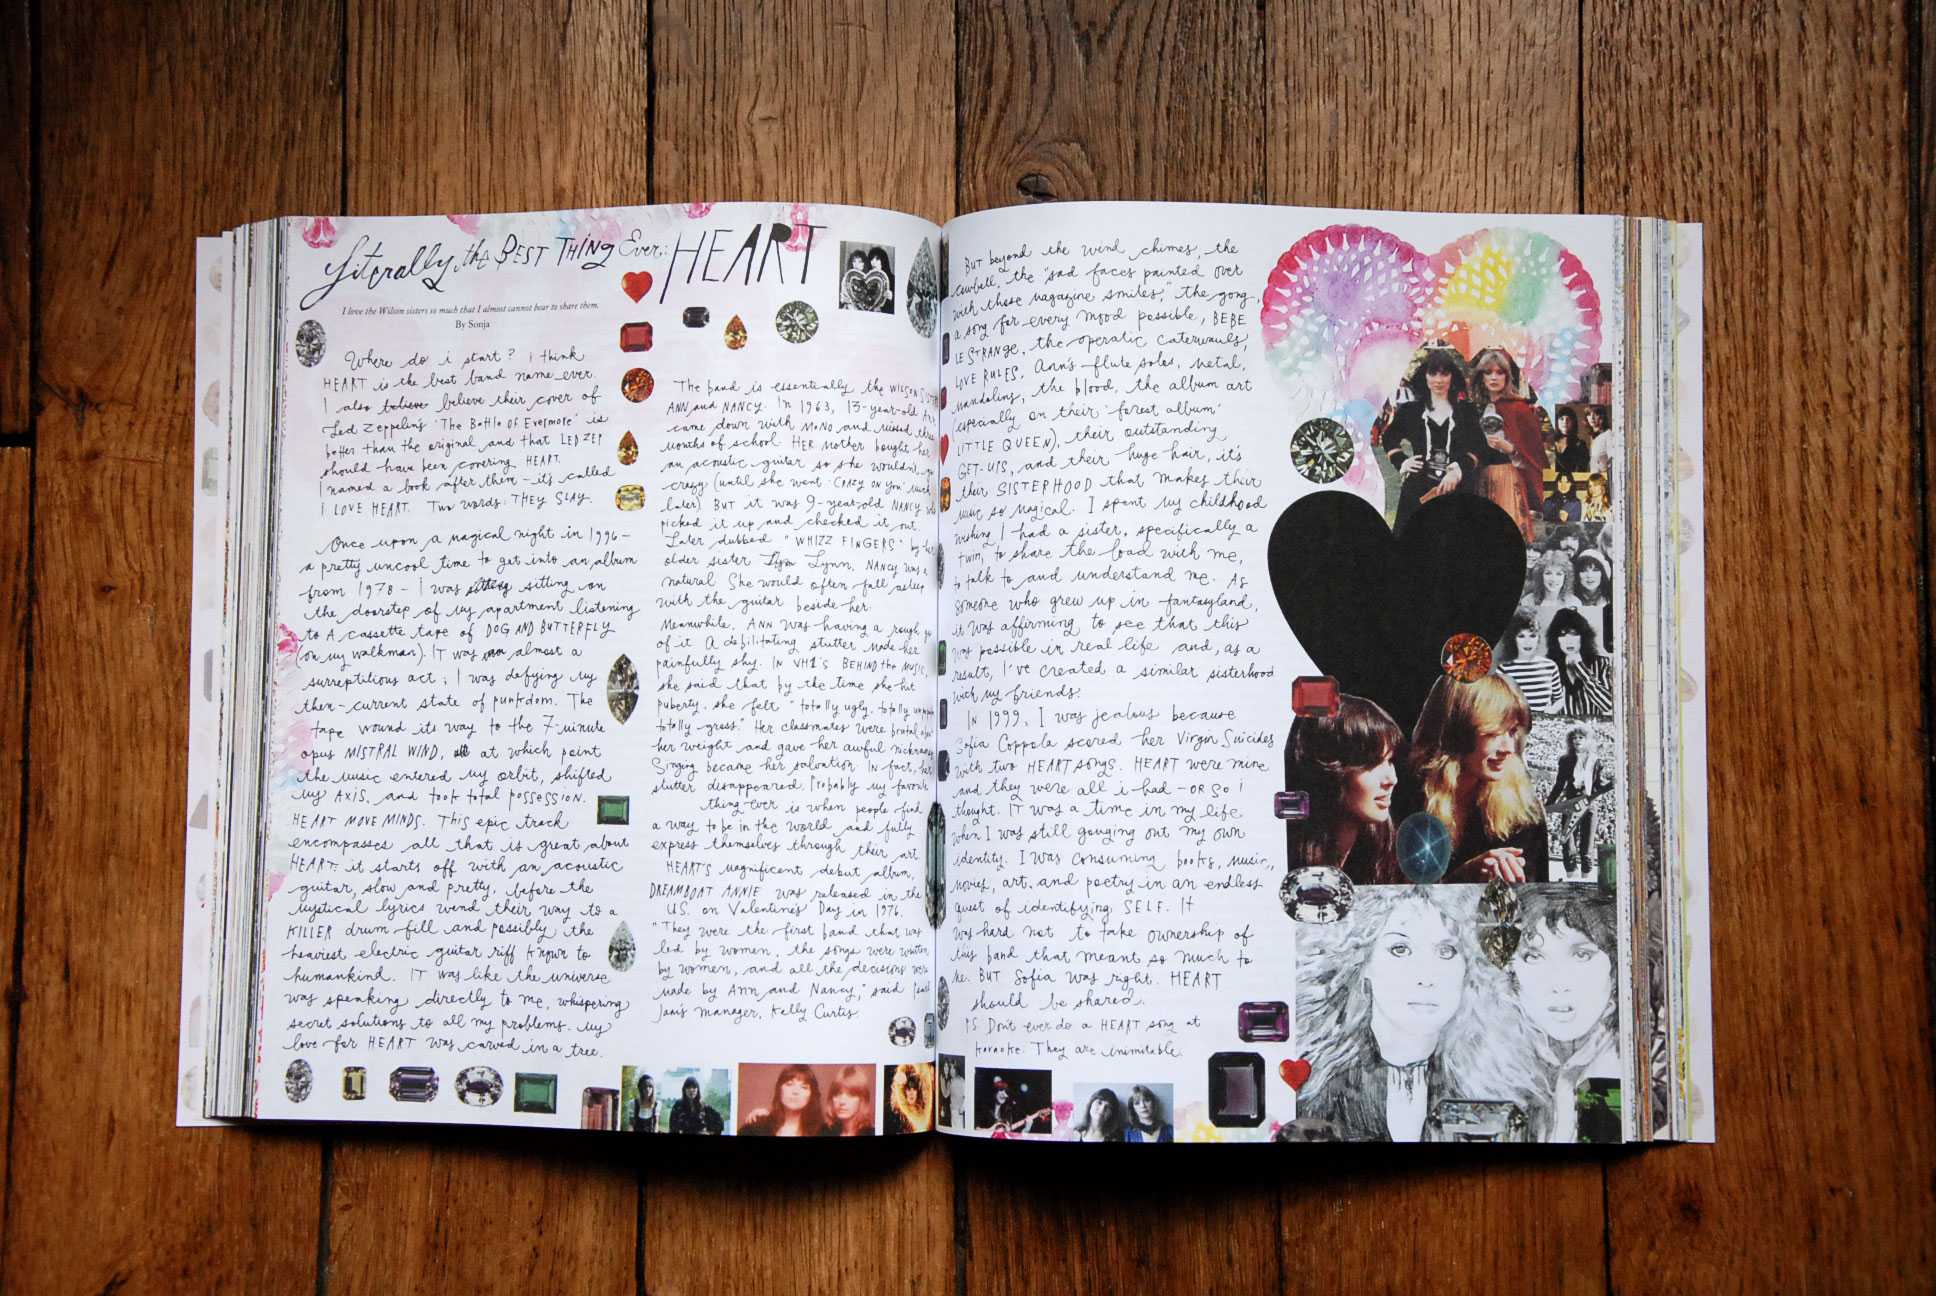 Literally the BEST THING Ever: HEART
I love the Wilson sisters so much that I almost cannot bear to share them.
By Sonja
Where do i start? i think
HEART is the best band name ever.
I also believe believe their cover of
Led Zeppelin's 'The Battle of Evermore' is
better than the original and that LED ZEP
should have been covering HEART.
I named a book after them - it's called
I LOVE HEART. Two words: THEY SLAY.
Once upon a magical night in 1996 -
a pretty uncool time to get into an album
from 1978 - I was sitting on
the doorstep of my apartment listening
to A cassette tape of DOG AND BUTTERFLY
(on my walkman). IT was almost a
surreptitious act; I was defying my
then-current state of punkdom. The
tape wound its way to the 7-minute
opus MISTRAL WIND, at which point
the music entered my orbit, shifted
my AXIS, and took total possession.
HEART MOVE MINDS. This epic track
encompasses all that is great about
HEART: it starts off with an acoustic
guitar, slow and pretty, before the
mystical lyrics wend their way to a
KILLER drum fill and possibly the
heaviest electric guitar riff known to
humankind. IT was like the universe
was speaking directly to me, whispering
secret solutions to all my problems. my
love for HEART was carved in a tree.
The band is essentially the WILSON
ANN and NANCY. In 1963, 13-year-old Ann
came down with MONO and missed three
months of school. HER mother bought her
an acoustic guitar so she wouldn't go
crazy (until she went 'CRAZY ON YOU' much
later). BUT it was 9-year-old NANCY who
picked it up and checked it out.
Later dubbed "WHIZZ FINGERS" by her
older sister Lynn, NANCY was a
natural. She would often fall asleep
with the guitar beside her.
Meanwhile, ANN was having a rough go
of it. A debilitating stutter made her
painfully shy. IN VH1'S BEHIND the MUSIC,
she said that by the time she hit
puberty, she felt "totally ugly, totally
totally gross." Her classmates were brutal about
her weight and gave her awful nicknames.
Singing became her salvation. IN fact, her
stutter disappeared. Probably my favorite
thing ever is when people find
a way to be in the world and fully
express themselves through their art.
HEART'S magnificent debut album,
DREAMBOAT ANNIE was released in the
U.S. on Valentine's Day in 1976.
"They were the first band that was
led by women, the songs were written
by women, and all the decisions were
made by Ann and Nancy," said
manager, Kelly Curtis.
But beyond the wind chimes, the
cowbell, the "sad faces painted over
with those magazine smiles," the gong,
a song for every mood possible, BEBE
LE STRANGE, the operatic caterwauls,
LOVE RULES, Ann's flute solos, metal,
mandolins, the blood, the album art
(especially on their 'forest album'
LITTLE QUEEN), their outstanding
GET-UPS, and their huge hair, it's
their SISTERHOOD that makes their
music so magical. I spent my childhood
wishing I had a sister, specifically a
twin, to share the load with me,
to talk to and understand me. As
someone who grew up in fantasyland,
it was affirming to see that this
was possible in real life and, as a
result, I've created a similar sisterhood
with my friends.
IN 1999, I was jealous because
Sofia Coppola scored her Virgin Suicides
with two HEART songs. HEART were mine
and they were all i had - OR SO I
thought. IT was a time in my life
when I was still gouging out my own
identity. I was consuming books, music,
movies, art, and poetry in an endless
quest of identifying SELF. It
was hard not to take ownership of
this band that meant so much to
me. BUT Sofia was right. HEART
should be shared.
PS Don't ever do a HEART song at
karaoke. They are inimitable.